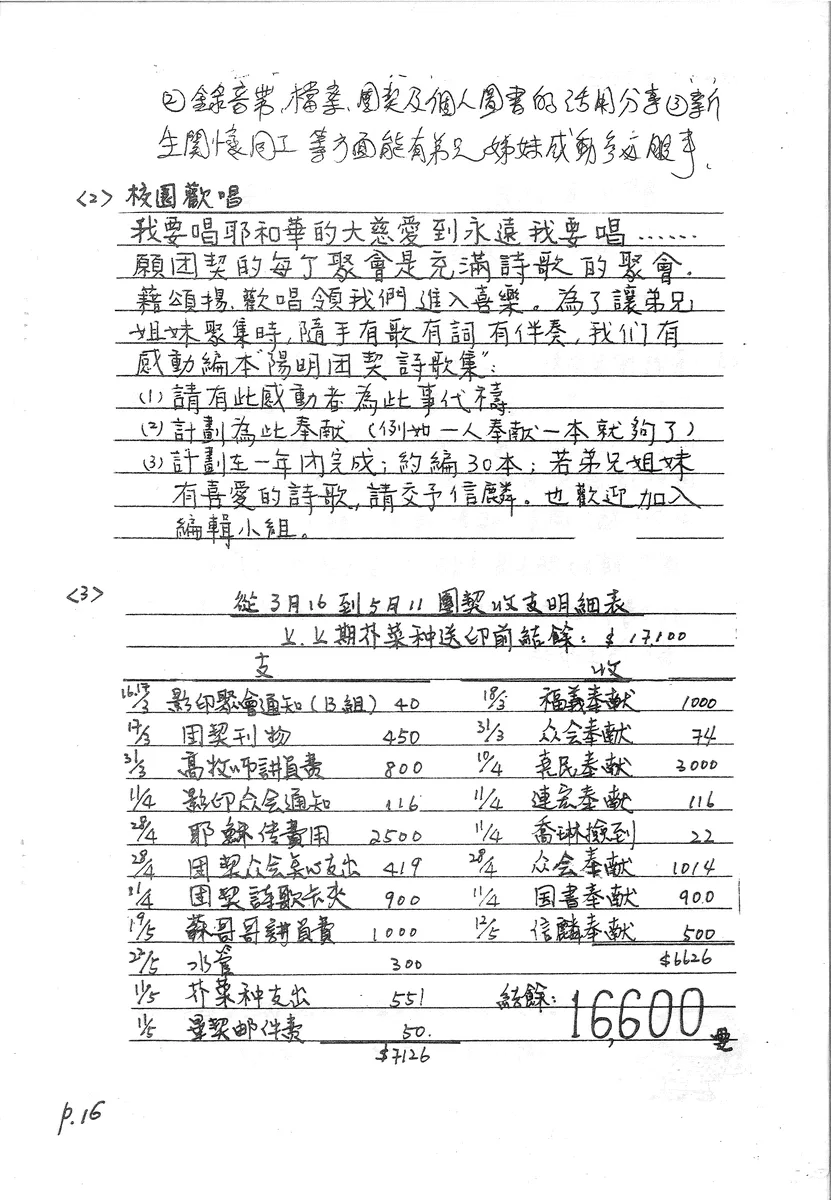 ②錄音帶、檔案、團契及個人圖書的活用分享③新
生関懷同工 等方面能有弟兄姊妹感動參与服事、
<2> 校園歡唱
我要唱耶和華的大慈愛到永遠 我要唱……
願団契的每个聚會是充滿詩歌的聚會.
藉頌揚、歡唱領我們進入喜樂。為了讓弟兄
姐妹聚集時,隨手有歌有詞有伴奏,我们有
感動編本"陽明団契詩歌集":
(1) 請有此感動者為此事代禱
(2) 計劃為此奉献 (例如一人奉献一本就夠了)
(3) 計劃在一年內完成;約編30本;若弟兄姐妹
有喜愛的詩歌,請交予信麟。也歡迎加入
編輯小組。
<3> 從3月16到5月11團契收支明細表
上.上期芥菜种送印前結餘: $ 17,100
支 收
16.17/3 影印聚會通知(B組) 40 18/3 福義奉献 1000
17/3 団契刊物 450 31/3 众会奉献 74
31/3 高牧师講員費 800 10/4 真民奉献 3000
11/4 影印众会通知 116 11/4 連宏奉献 116
28/4 耶穌传費用 2500 11/4 喬琳撿到 22
28/4 団契众会点心支出 419 28/4 众会奉献 1014
21/4 団契詩歌卡夾 900 11/4 国書奉献 900
19/5 蘇哥哥講員費 1000 12/5 信麟奉献 500
27/5 水管 300 $6626
11/5 芥菜种支出 551 結餘: 16,600
11/5 量契邮件费 50.
$7126
p.16